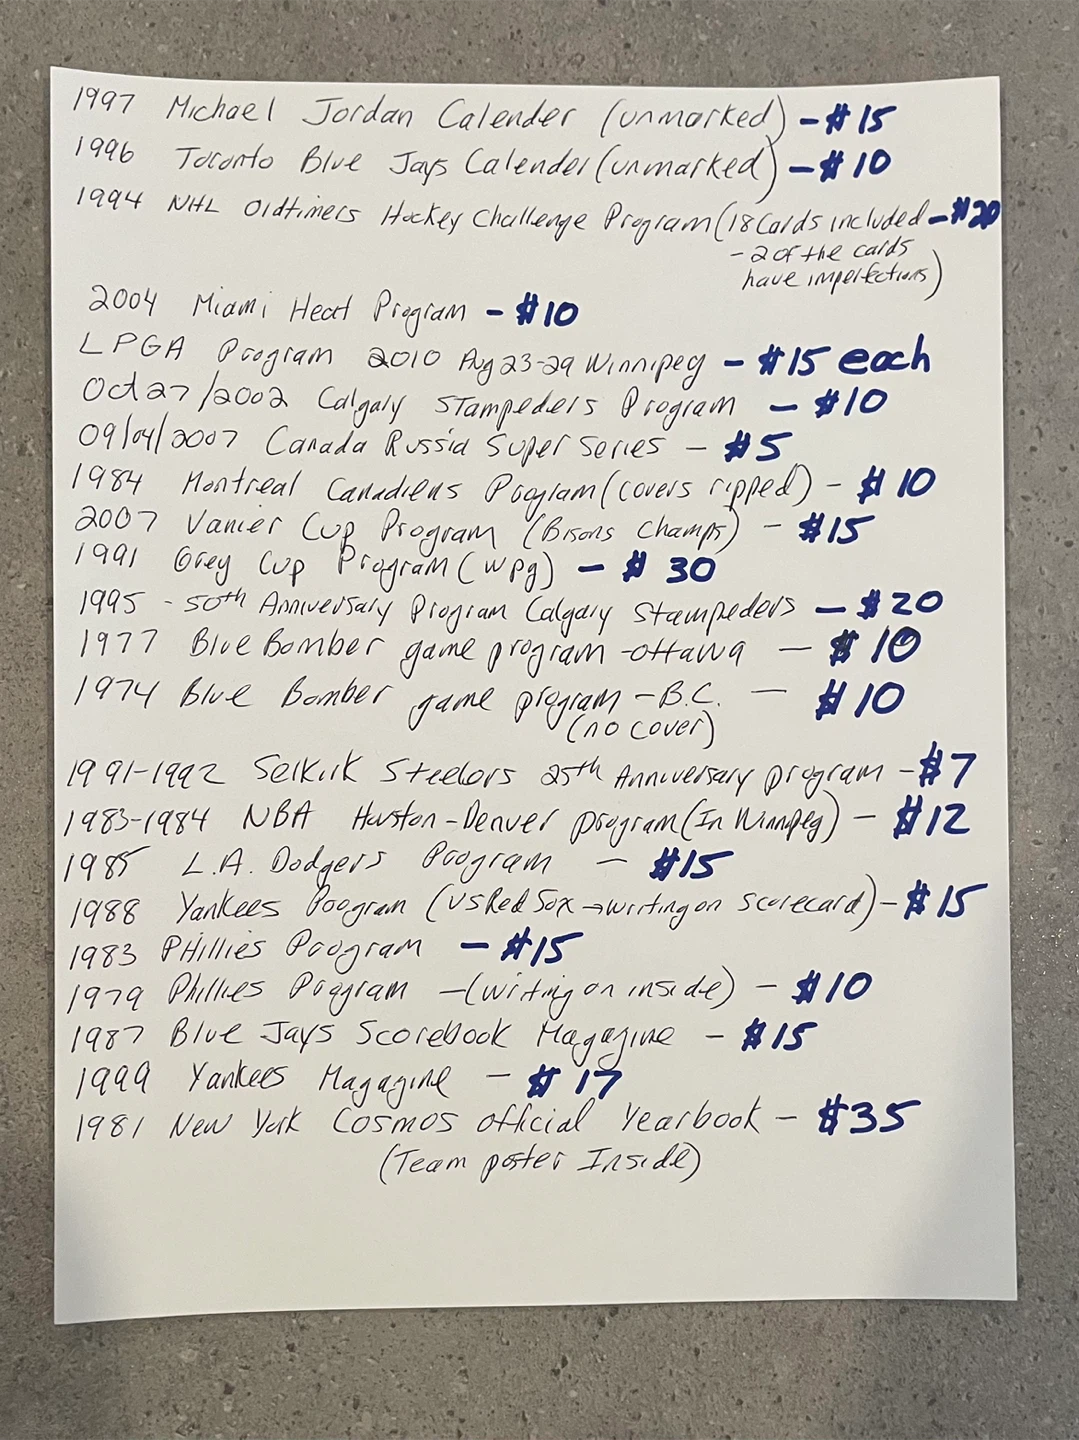 1997 Michael Jordan Calender (unmarked) - $15
1996 Toronto Blue Jays Calender (unmarked) - $10
1994 NHL Oldtimers Hockey Challenge Program (18 Cards included - $20
- 2 of the cards
have imperfections)
2004 Miami Heat Program - $10
LPGA Program 2010 Aug 23-29 Winnipeg - $15 each
Oct 27/2002 Calgary Stampeders Program - $10
09/04/2007 Canada Russia Super Series - $5
1984 Montreal Canadiens Program (covers ripped) - $10
2007 Vanier Cup Program (Bisons Champs) - $15
1991 Grey Cup Program (Wpg) - $30
1995 - 50th Anniversary Program Calgary Stampeders - $20
1977 Blue Bomber game program - Ottawa - $10
1974 Blue Bomber game program - B.C. - $10
(no cover)
1991-1992 Selkirk Steelers 25th Anniversary program - $7
1983-1984 NBA Houston-Denver program (In Winnipeg) - $12
1985 L.A. Dodgers Program - $15
1988 Yankees Program (vs Red Sox → writing on scorecard) - $15
1983 Phillies Program - $15
1979 Phillies Program - (writing on inside) - $10
1987 Blue Jays Scorebook Magazine - $15
1999 Yankees Magazine - $17
1981 New York Cosmos official Yearbook - $35
(Team poster Inside)